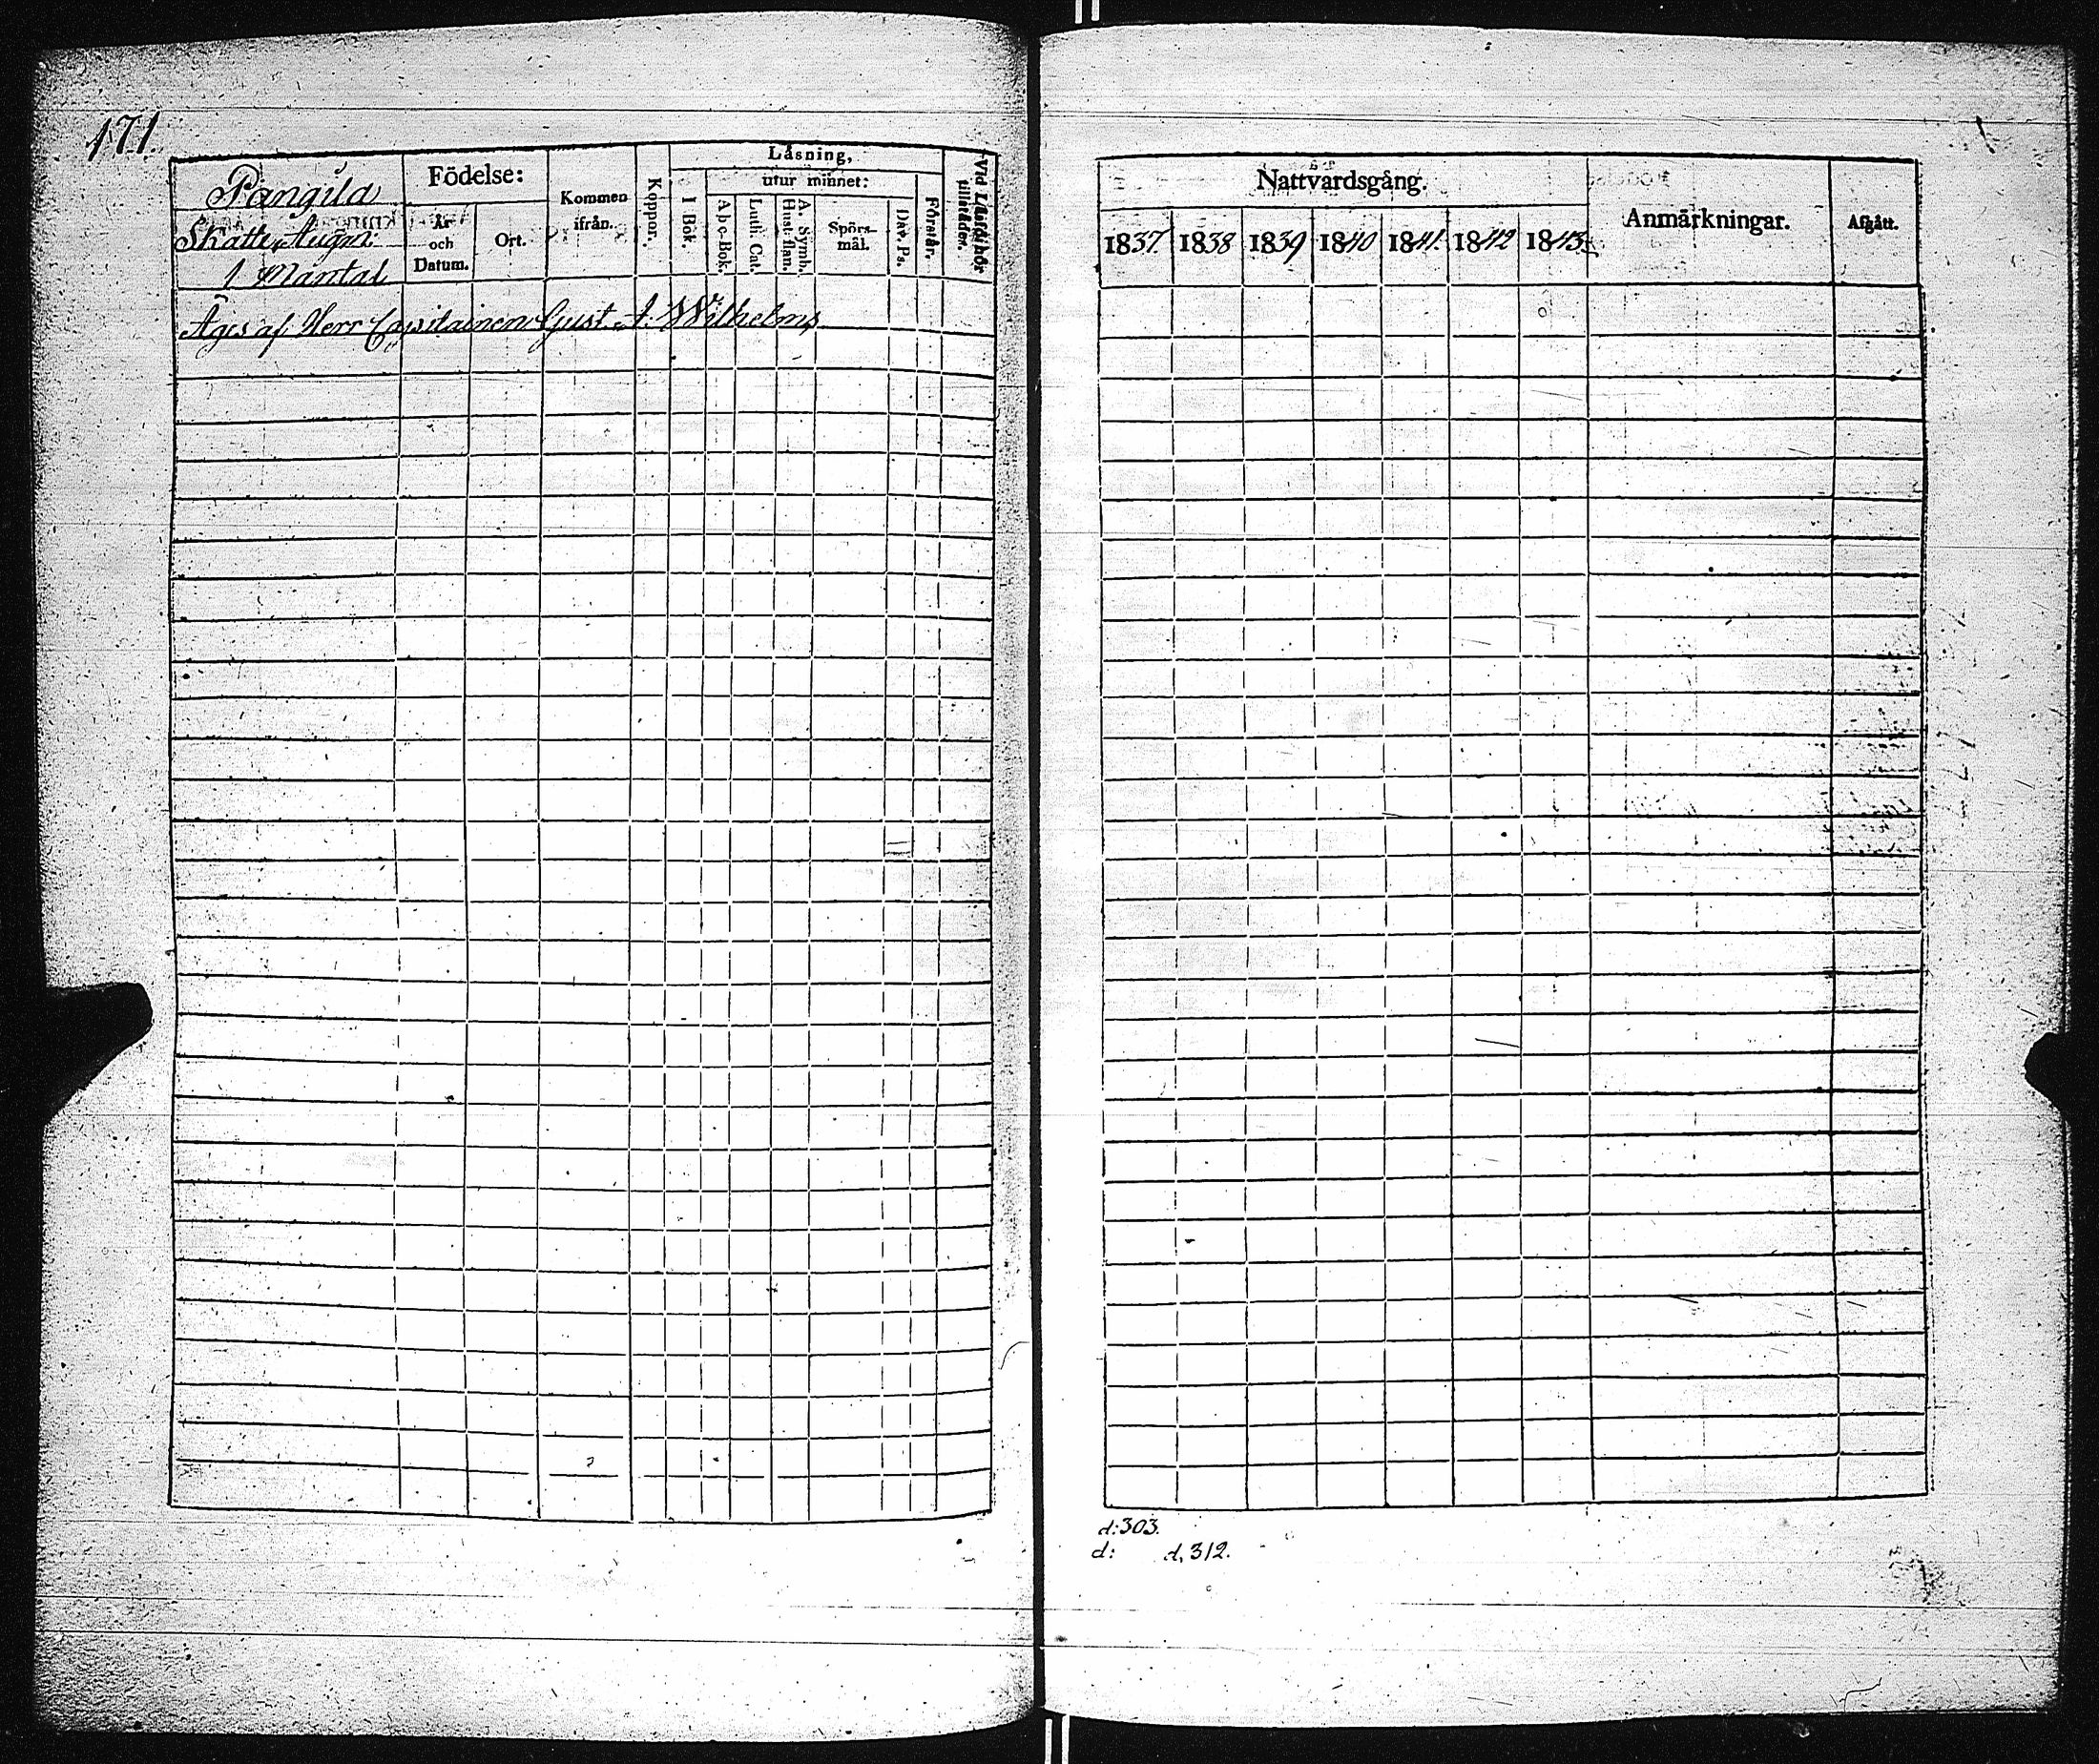 171.
Pångila
Skatte Augm:
1 Mantal
Födelse:
År och Datum.
Ort.
Kommen ifrån.
Koppor.
Läsning,
I Bok.
utur minnet:
Abc-Bok.
Luth. Cat.
A. Symb. Hust: flan.
Spörs-mål.
Dav. Ps.
Förstår.
Vid Läsförhör tillstädes.
Äges af Herr Capitainen Gust. A. Wilhelms
Nattvardsgång.
1837. 1838 1839 1840 1841. 1842 1843.
Anmärkningar.
Afgått.
d:303.
d: d, 312.